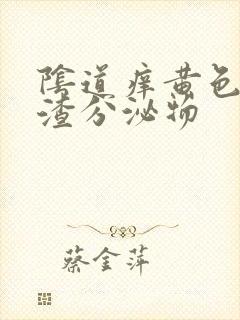 陰道痒黄色
渣分泌物
蔡金萍